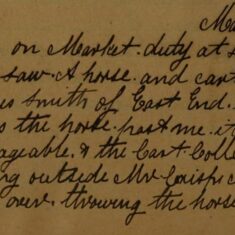 Ma
on Market duty at
saw. A horse. and car
smith of East End.
the horse. past me. it
ageable. & the Cart. Colle
ng outside Mr
over. throwing the horse